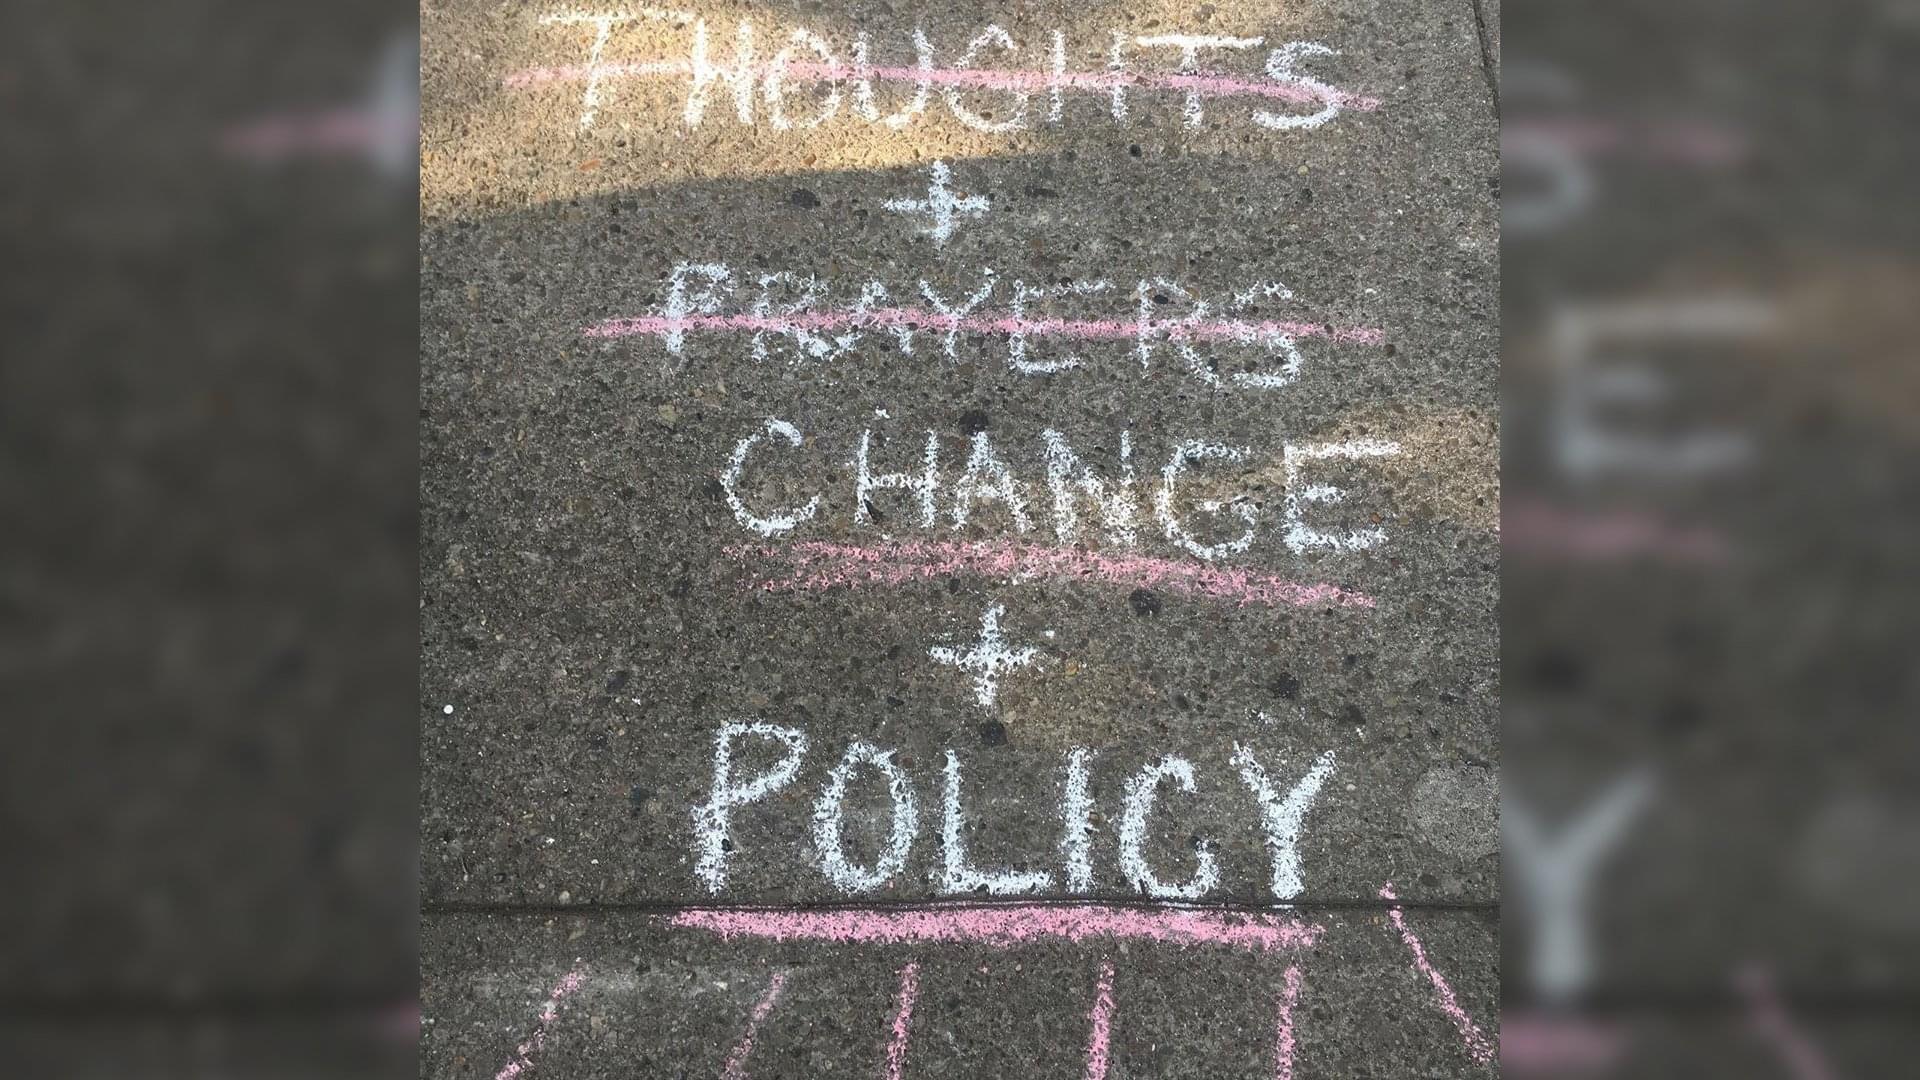 THOUGHTS
+
PRAYERS
CHANGE
+
POLICY